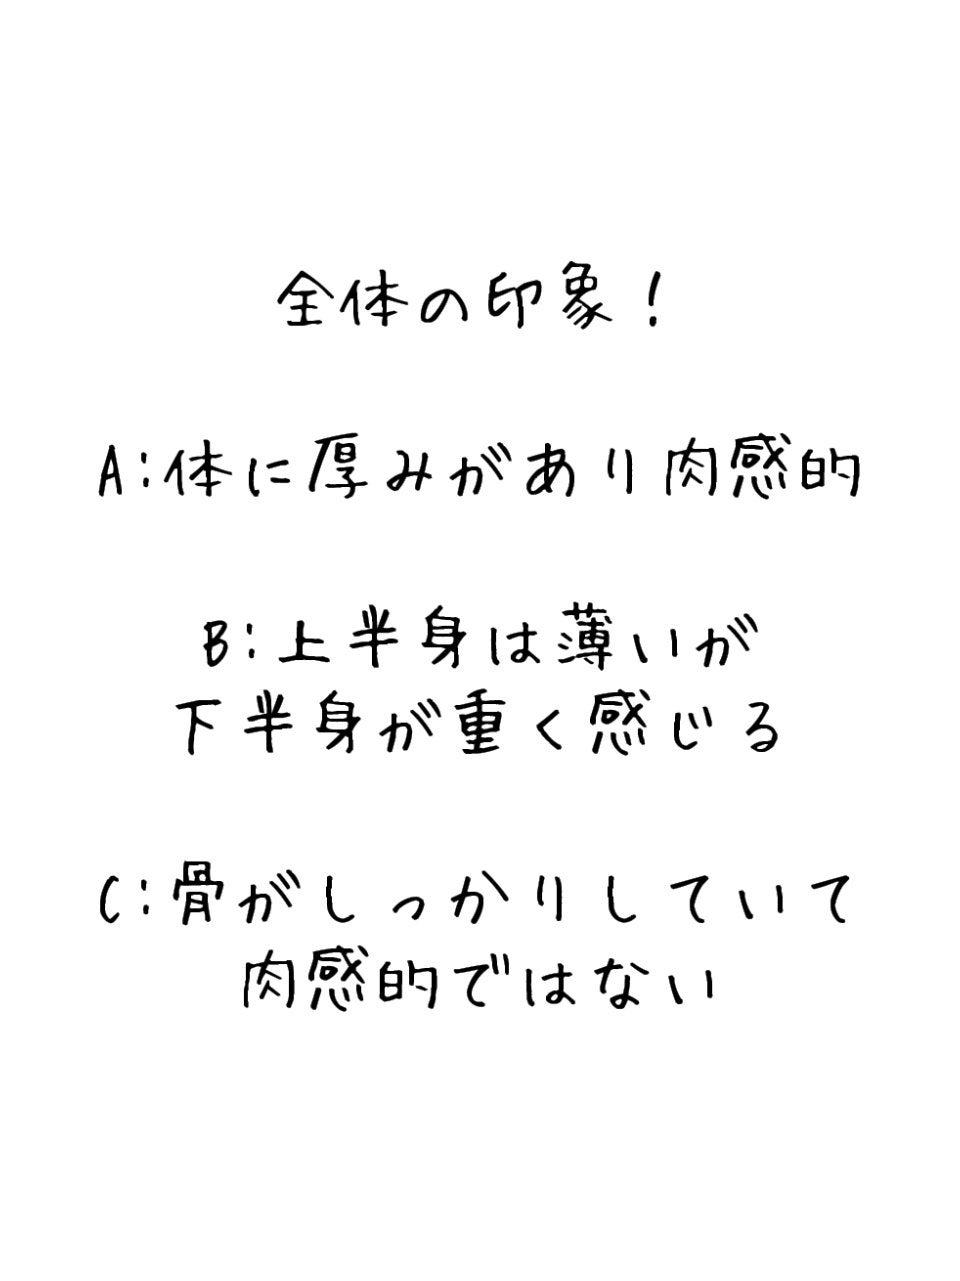 全体の印象！
A:体に厚みがあり肉感的
B:上半身は薄いが
下半身が重く感じる
C:骨がしっかりしていて
肉感的ではない